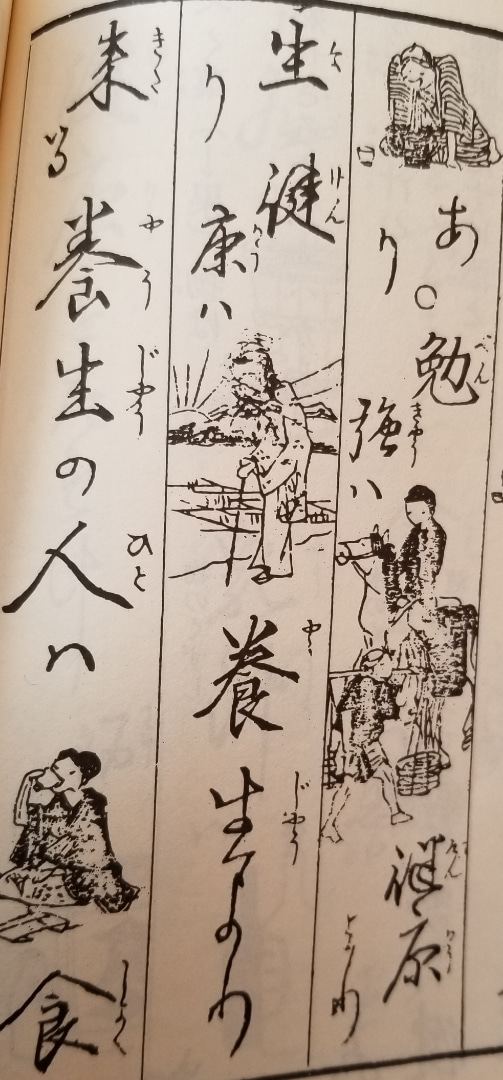 あり○勉強ハ健康より
生り健康ハ養生より
来る養生の人ハ食